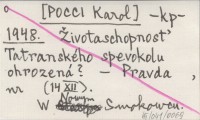 [POCCI Karol] -kp-
1948. Životaschopnosť
Tatranského spevokolu
ohrozená? - Pravda,
nr (14 XII).
Novom
W Smokovcu.